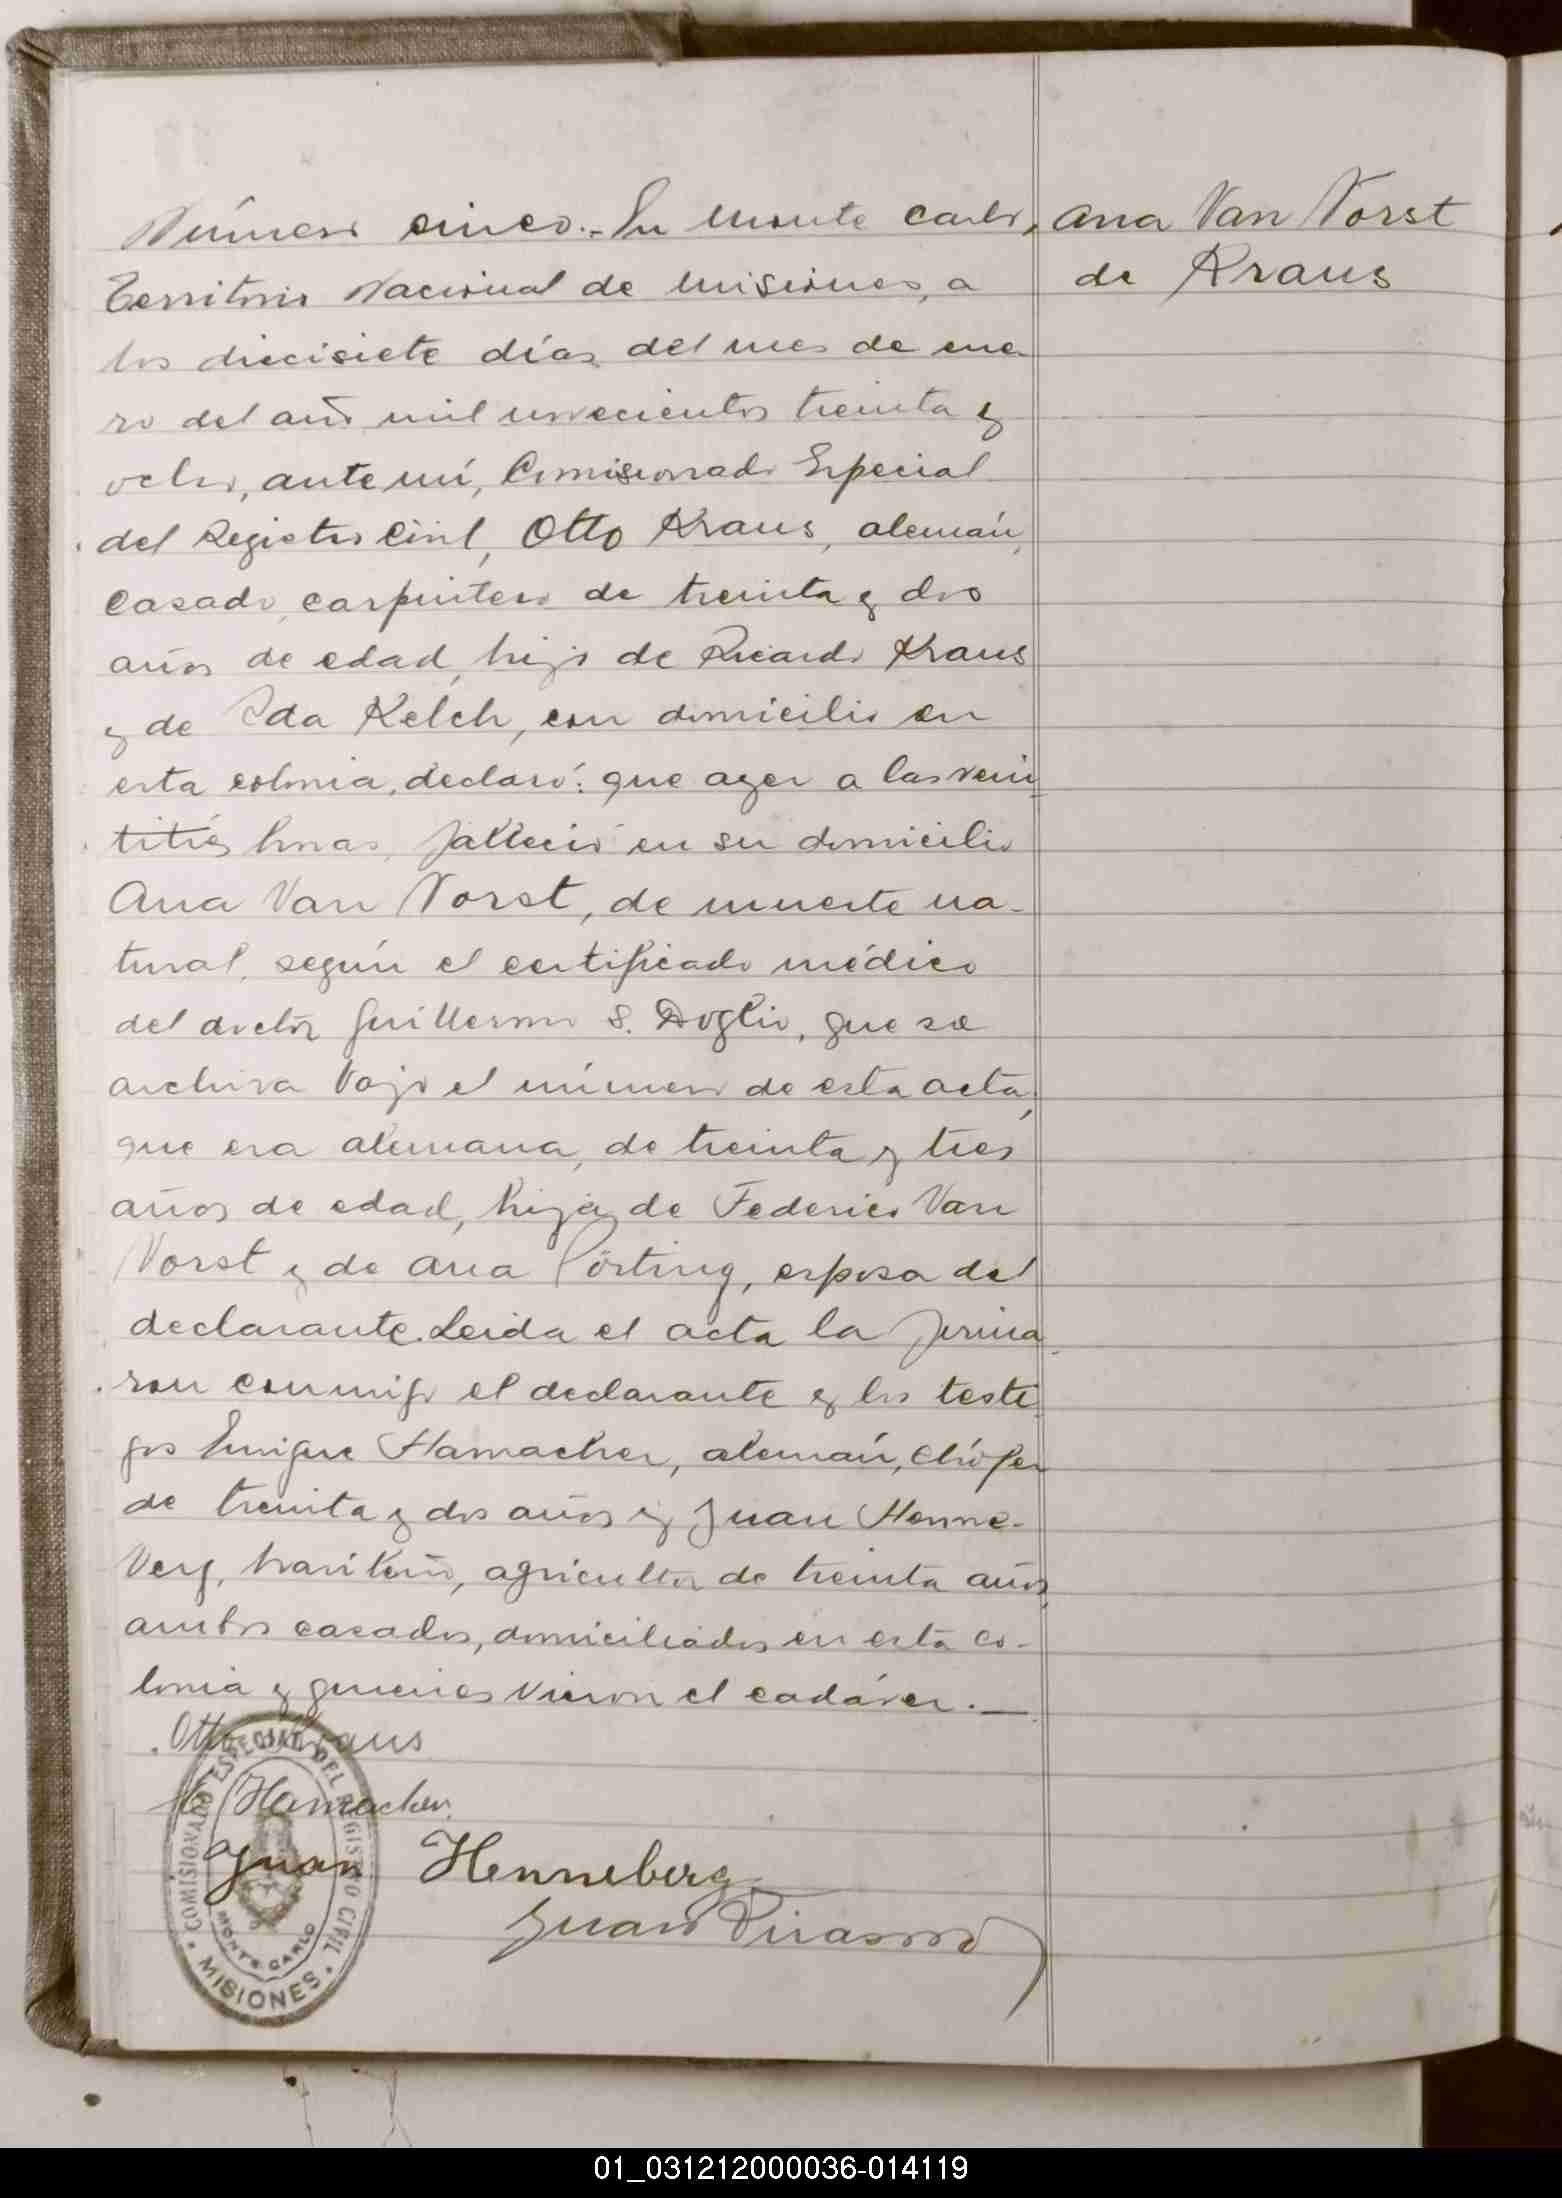 Número cinco.- En Monte Carlo,
Territorio Nacional de Misiones, a
los diecisiete días del mes de ene
ro del año mil novecientos treinta y
ocho, ante mí, Comisionado Especial
del Registro Civil, Otto Kraus, alemán,
casado, carpintero de treinta y dos
años de edad, hijo de Ricardo Kraus
y de Ida Kelch, con domicilio en
esta colonia, declaró: que ayer a las vein
titrés horas, falleció en su domicilio
Ana Van Vorst, de muerte na-
tural, según el certificado médico
del doctor Guillermo S. Doglio, que se
archiva vajo el número de esta acta,
que era alemana, de treinta y tres
años de edad, hija de Federico Van
Vorst y de Ana Pörting, esposa del
declarante. Leida el acta la firma
ron conmigo el declarante y los testi
gos Enrique Hamacher, alemán, chófer
de treinta y dos años y Juan Henne-
verg, brasileño, agricultor de treinta años,
ambos casados, domiciliados en esta co-
lonia y quienes vieron el cadáver.—
Otto Kraus
H. Hamacher.
Juan Henneberg
Juan
COMISIONADO ESPECIAL DEL REGISTRO CIVIL
MONTE CARLO
MISIONES
Ana Van Vorst
de Kraus
01_031212000036-014119